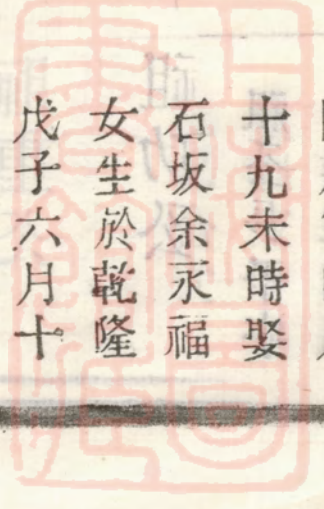 十九未時娶
石坂余永福
女生於乾隆
戊子六月十